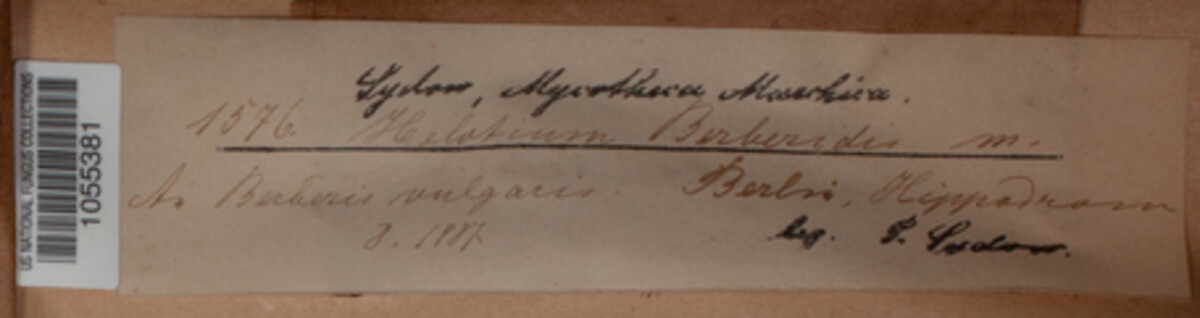 US NATIONAL FUNGUS COLLECTIONS
01055381
Sydow, Mycotheca Marchica.
1576. Helotium Berberidis m.
An Berberis vulgaris. Berlin, Hippodrom
8. 1887
leg. P. Sydow.